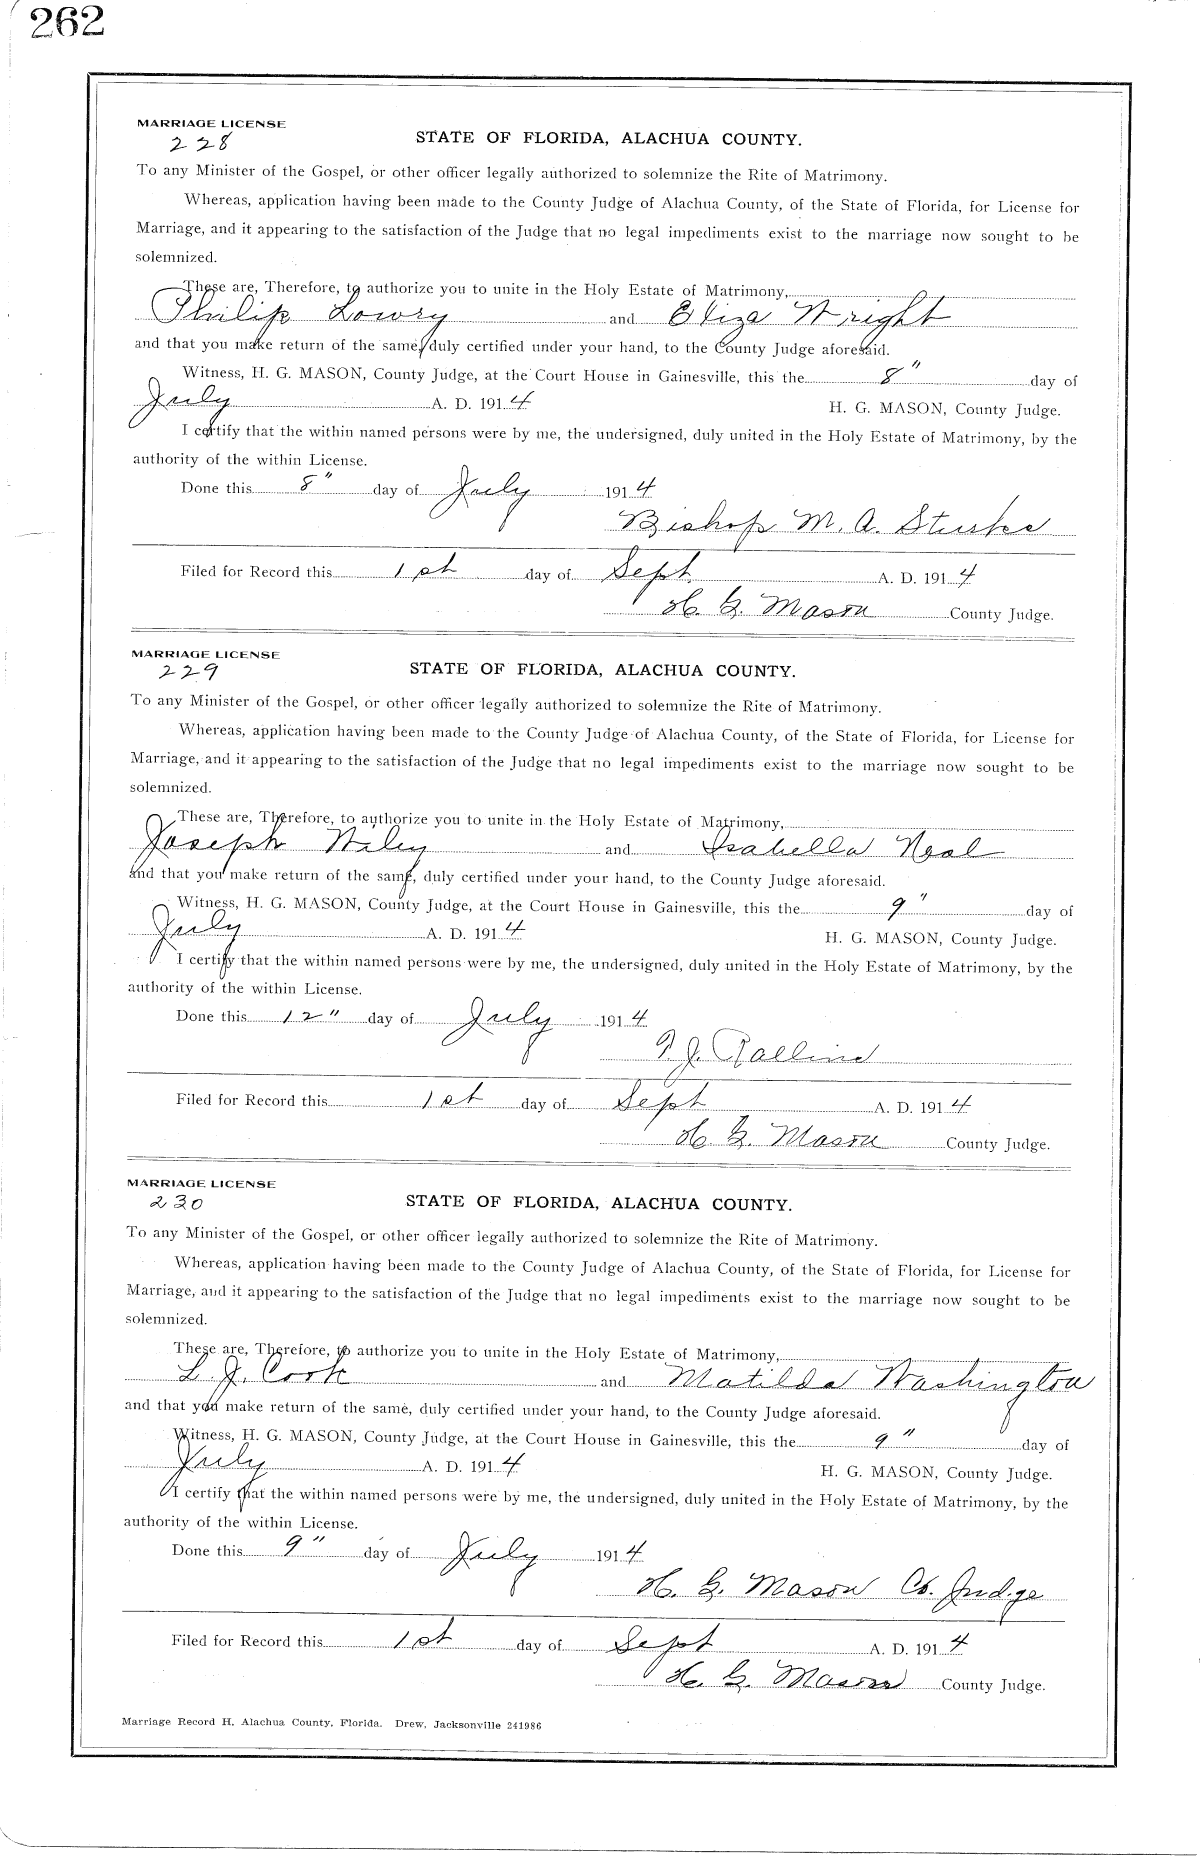 262
MARRIAGE LICENSE
228
STATE OF FLORIDA, ALACHUA COUNTY.
To any Minister of the Gospel, or other officer legally authorized to solemnize the Rite of Matrimony.
Whereas, application having been made to the County Judge of Alachua County, of the State of Florida, for License for
Marriage, and it appearing to the satisfaction of the Judge that no legal impediments exist to the marriage now sought to be
solemnized.
These are, Therefore, to authorize you to unite in the Holy Estate of Matrimony,
Philip Lowry and Eliza Wright
and that you make return of the same, duly certified under your hand, to the County Judge aforesaid.
Witness, H. G. MASON, County Judge, at the Court House in Gainesville, this the 8" day of
July A. D. 1914 H. G. MASON, County Judge.
I certify that the within named persons were by me, the undersigned, duly united in the Holy Estate of Matrimony, by the
authority of the within License.
Done this 8" day of July 1914
Bishop M. A.
Filed for Record this 1st day of Sept A. D. 1914
H. G. Mason County Judge.
MARRIAGE LICENSE
229
STATE OF FLORIDA, ALACHUA COUNTY.
To any Minister of the Gospel, or other officer legally authorized to solemnize the Rite of Matrimony.
Whereas, application having been made to the County Judge of Alachua County, of the State of Florida, for License for
Marriage, and it appearing to the satisfaction of the Judge that no legal impediments exist to the marriage now sought to be
solemnized.
These are, Therefore, to authorize you to unite in the Holy Estate of Matrimony,
Joseph Wiley and Isabella Neal
and that you make return of the same, duly certified under your hand, to the County Judge aforesaid.
Witness, H. G. MASON, County Judge, at the Court House in Gainesville, this the 9" day of
July A. D. 1914 H. G. MASON, County Judge.
I certify that the within named persons were by me, the undersigned, duly united in the Holy Estate of Matrimony, by the
authority of the within License.
Done this 12" day of July 1914
J.
Filed for Record this 1st day of Sept A. D. 1914
H. G. Mason County Judge.
MARRIAGE LICENSE
230
STATE OF FLORIDA, ALACHUA COUNTY.
To any Minister of the Gospel, or other officer legally authorized to solemnize the Rite of Matrimony.
Whereas, application having been made to the County Judge of Alachua County, of the State of Florida, for License for
Marriage, and it appearing to the satisfaction of the Judge that no legal impediments exist to the marriage now sought to be
solemnized.
These are, Therefore, to authorize you to unite in the Holy Estate of Matrimony,
L. J. Cook and Matilda Washington
and that you make return of the same, duly certified under your hand, to the County Judge aforesaid.
Witness, H. G. MASON, County Judge, at the Court House in Gainesville, this the 9" day of
July A. D. 1914 H. G. MASON, County Judge.
I certify that the within named persons were by me, the undersigned, duly united in the Holy Estate of Matrimony, by the
authority of the within License.
Done this 9" day of July 1914
H. G. Mason Co. Judge
Filed for Record this 1st day of Sept A. D. 1914
H. G. Mason County Judge.
Marriage Record H, Alachua County, Florida. Drew, Jacksonville 241986